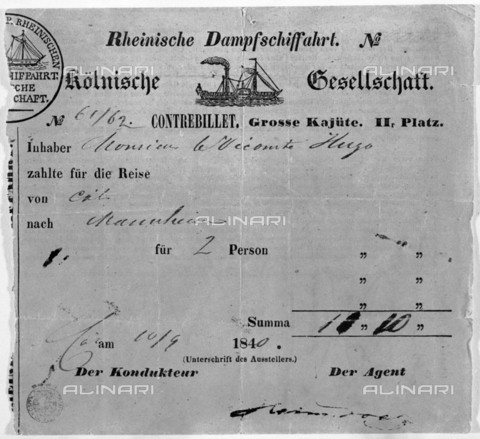 P. RHEINISCHEN
SCHIFFAHRT.
SCHE
SCHAFT.
Rheinische Dampfschiffahrt. №
Kölnische Gesellschaft.
№ 61/62. CONTREBILLET, Grosse Kajüte. II, Platz.
Inhaber Monsieur le Vicomte Hugo
zahlte für die Reise
von
nach Mannheim
für 2 Person „ „
„ „
„ „
Summa „ 10 „
am 10/9 1840.
(Unterschrift des Ausstellers.)
Der Kondukteur Der Agent
ALINARI
ALINARI
ALINARI
ALINARI
ALINARI
ALINARI